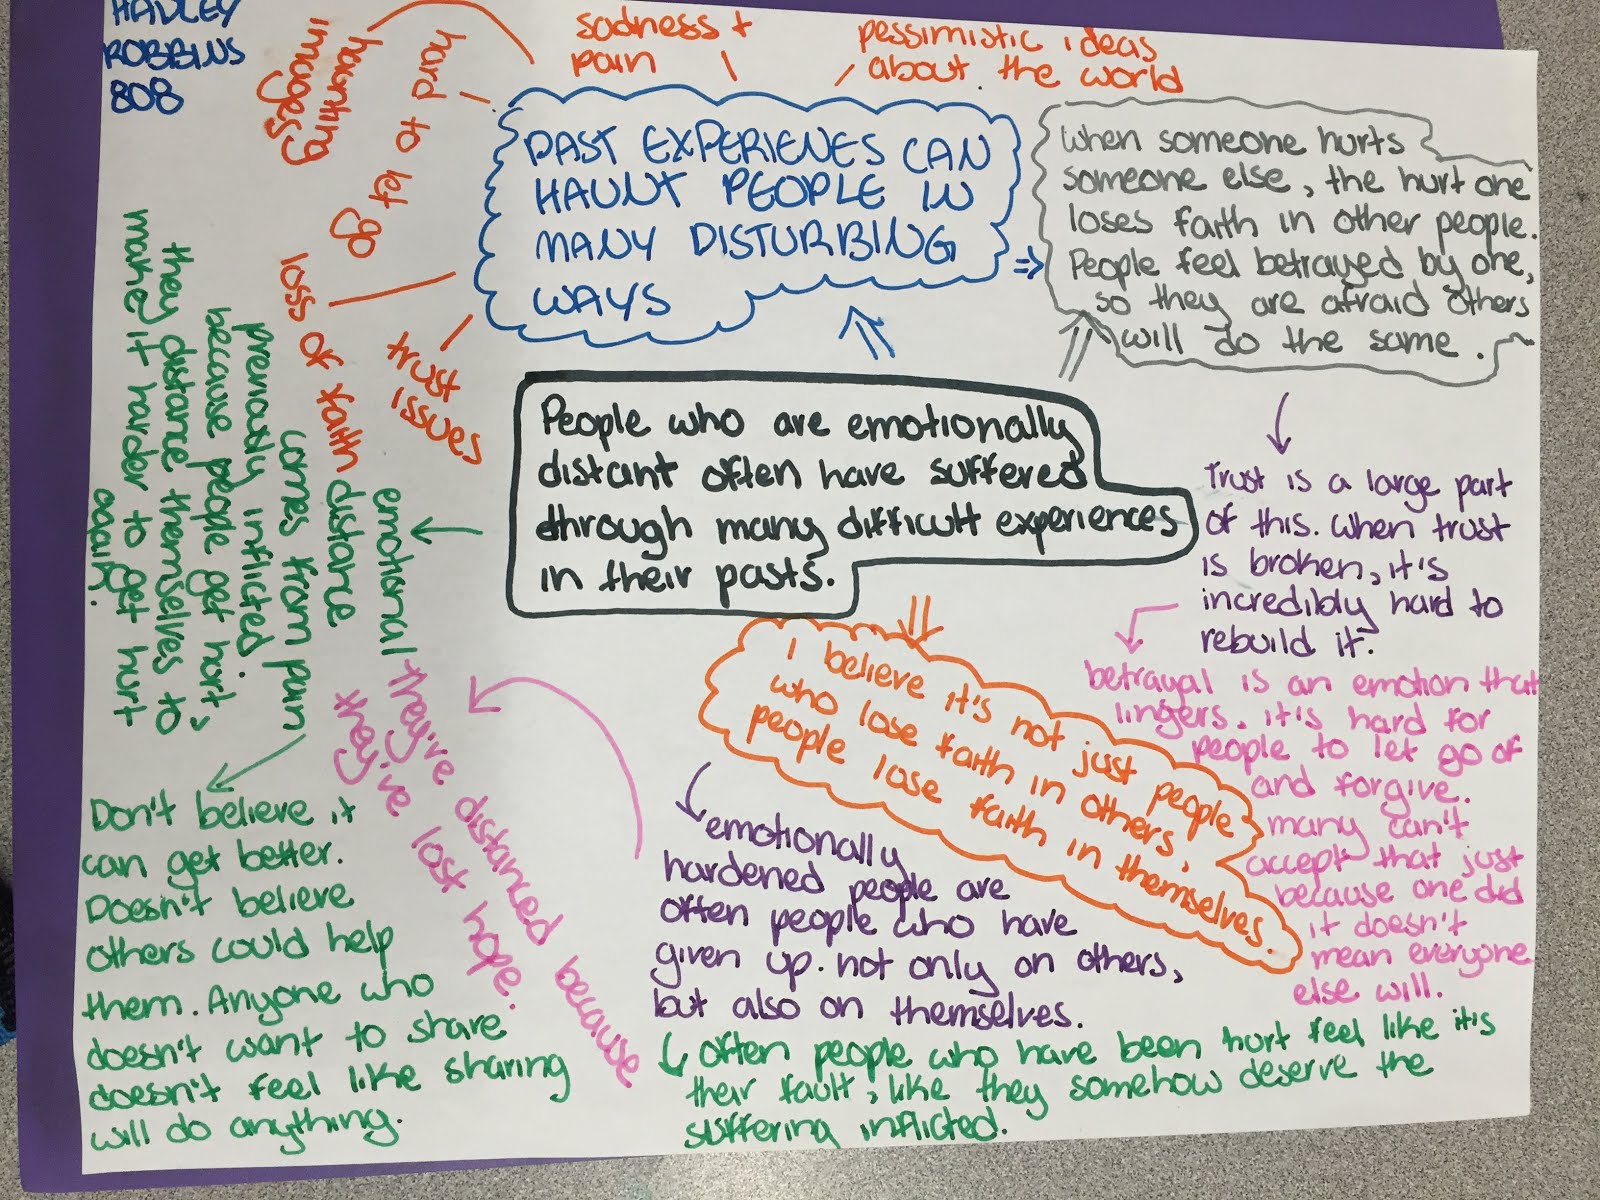 HADLEY
ROBBINS
808
haunting
images
hard to let go
sadness +
pain
pessimistic ideas
about the world
loss of faith
trust
issues
PAST EXPERIENES CAN
HAUNT PEOPLE IN
MANY DISTURBING
WAYS
When someone hurts
someone else, the hurt one
loses faith in other people.
People feel betrayed by one,
so they are afraid others
will do the same.
People who are emotionally
distant often have suffered
through many difficult experiences
in their pasts.
Trust is a large part
of this. When trust
is broken, it's
incredibly hard to
rebuild it.
betrayal is an emotion that
lingers. it's hard for
people to let go of
and forgive.
many can't
accept that just
because one did
it doesn't
mean everyone
else will.
I believe it's not just people
who lose faith in others,
people lose faith in themselves.
emotionally
hardened people are
often people who have
given up. not only on others,
but also on themselves.
Often people who have been hurt feel like it's
their fault; like they somehow deserve the
suffering inflicted.
they're distanced because
they've lost hope.
emotional
distance
comes from pain
previously inflicted.
because people get hurt,
they distance themselves to
make it harder to get hurt
again.
Don't believe it
can get better.
Doesn't believe
others could help
them. Anyone who
doesn't want to share
doesn't feel like sharing
will do anything.